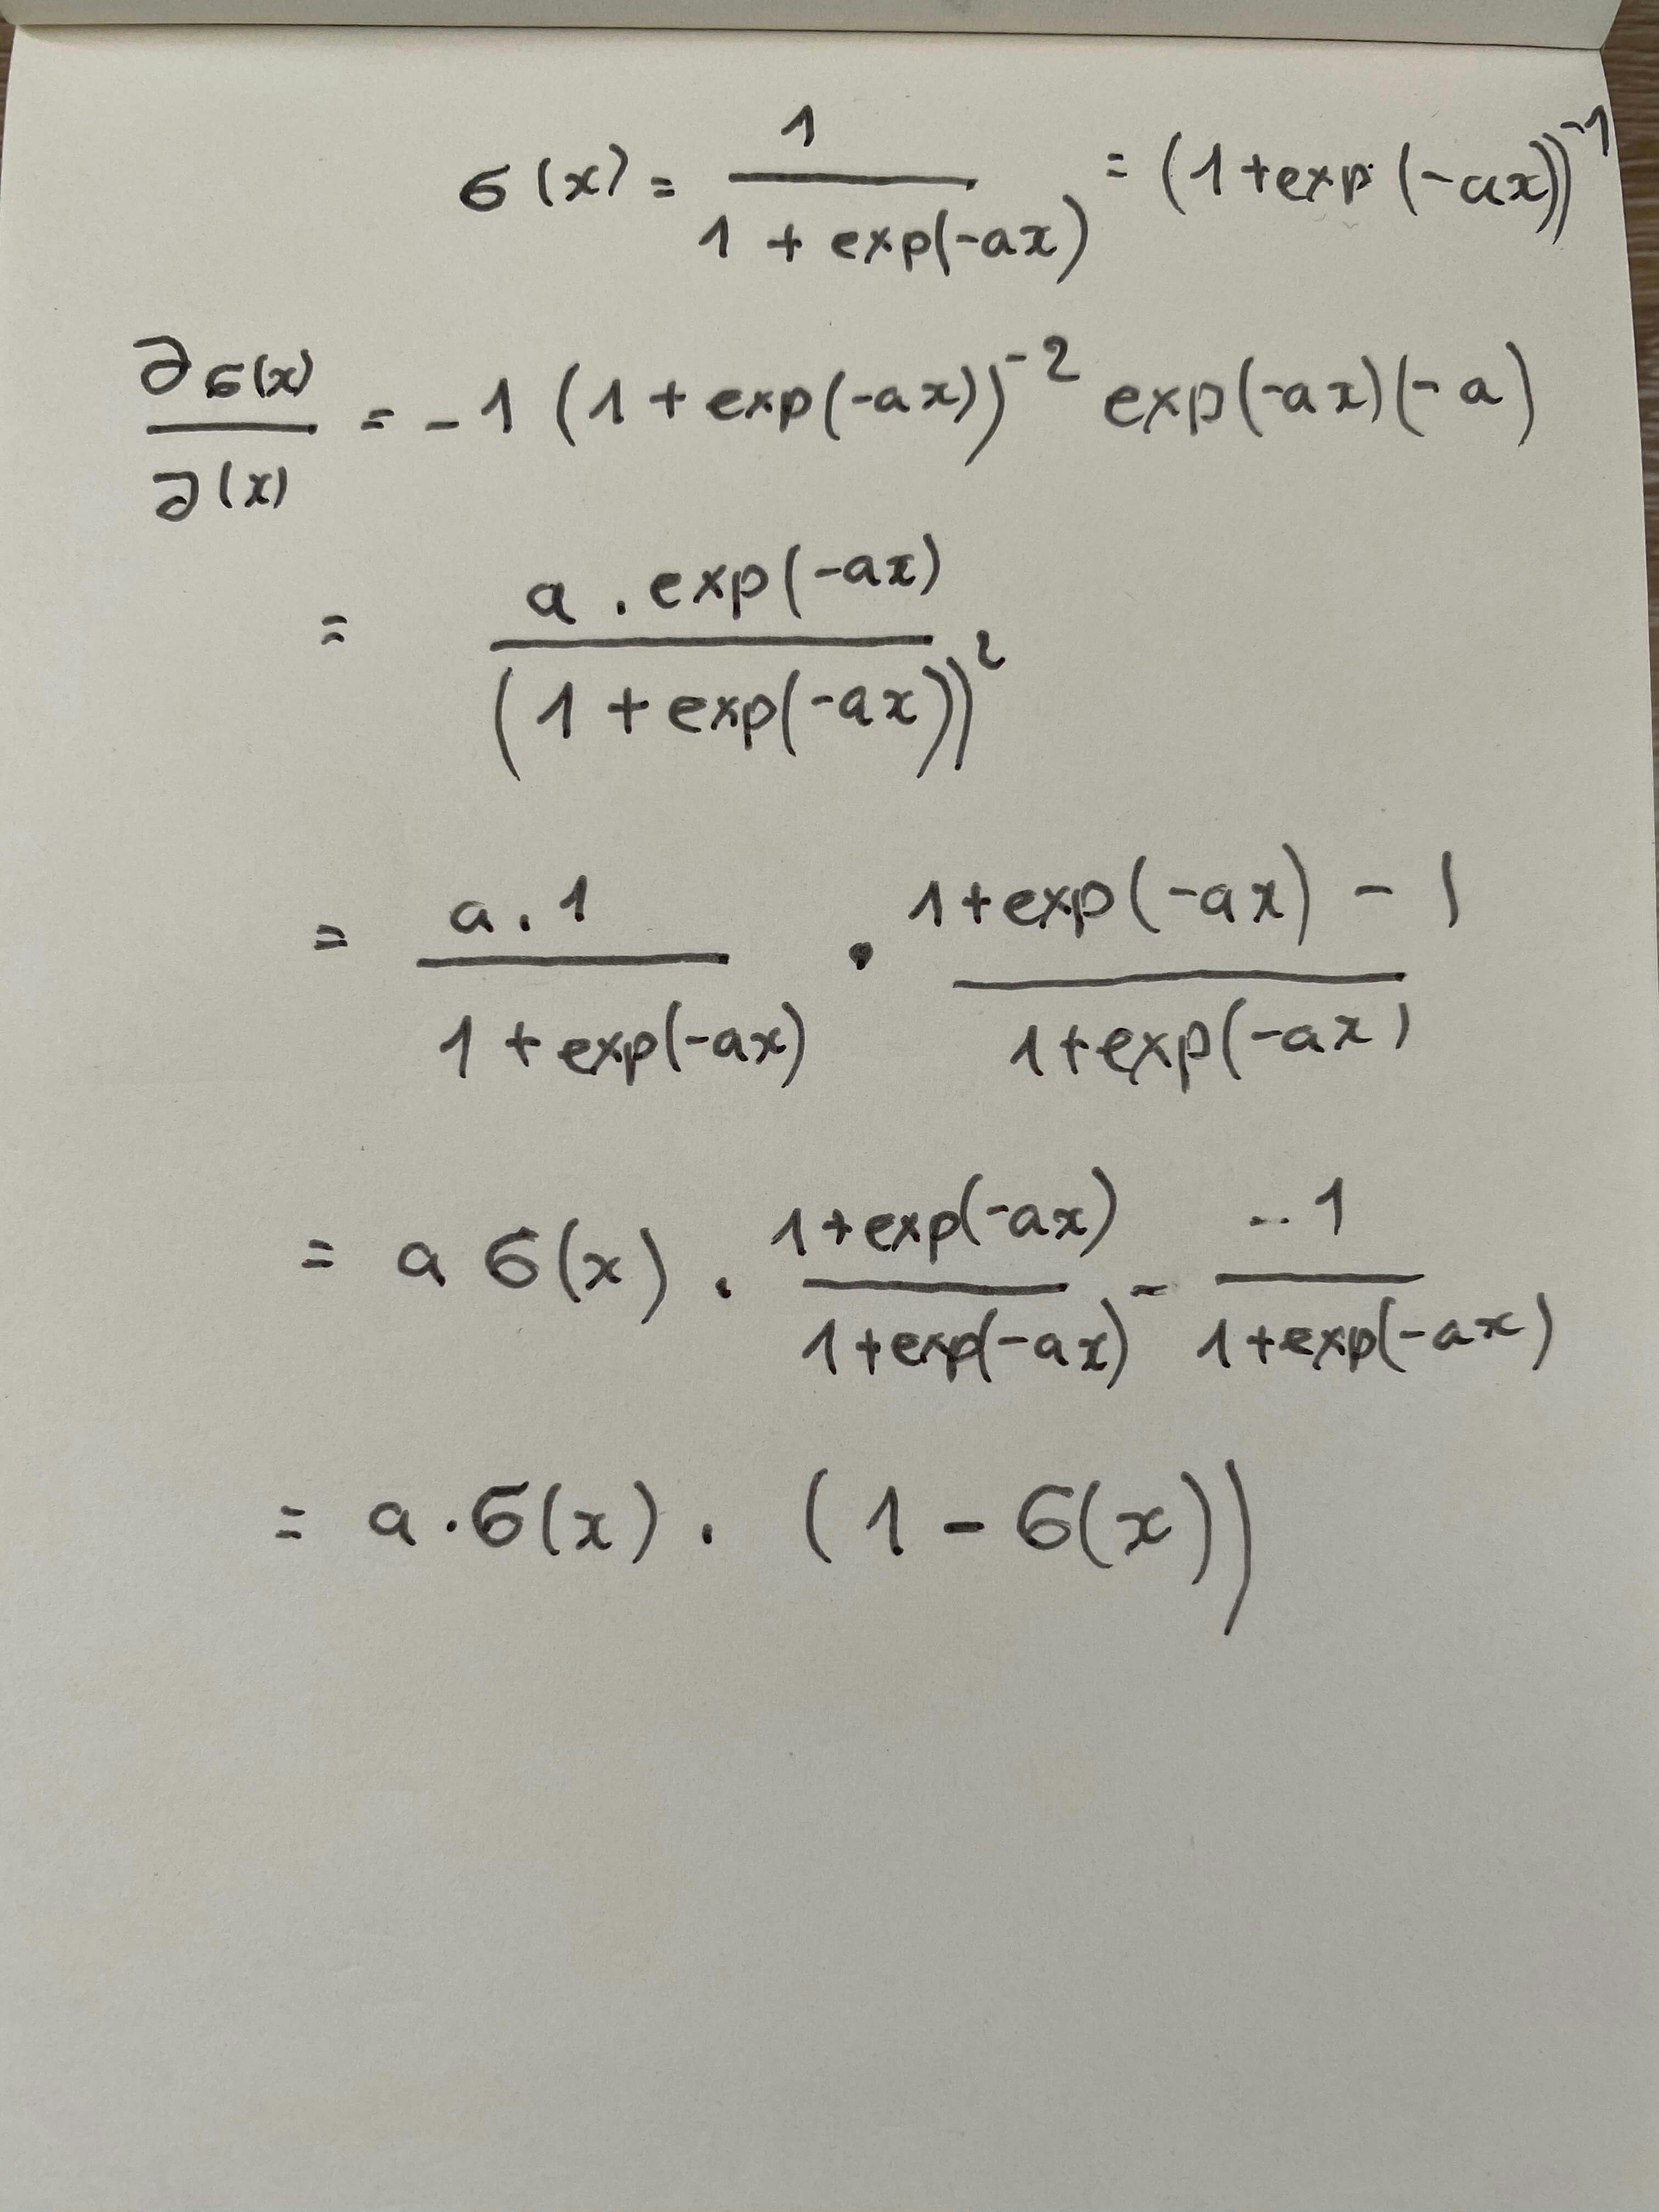 σ(x) = 1 / (1 + exp(-ax)) = (1 + exp(-ax))^-1
∂σ(x) / ∂(x) = -1 (1 + exp(-ax))^-2 exp(-ax)(-a)
= a . exp(-ax) / (1 + exp(-ax))^2
= a . 1 / (1 + exp(-ax)) . (1 + exp(-ax) - 1) / (1 + exp(-ax))
= a σ(x) . (1 + exp(-ax)) / (1 + exp(-ax)) - -1 / (1 + exp(-ax))
= a . σ(x) . (1 - σ(x))